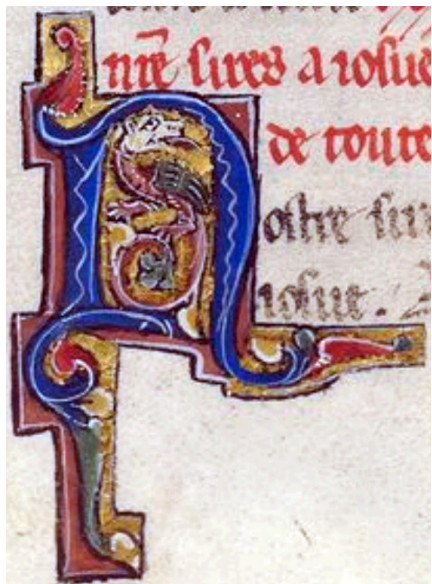 nr̄e sires a iosue
de toute
Nostre sire
iosue.